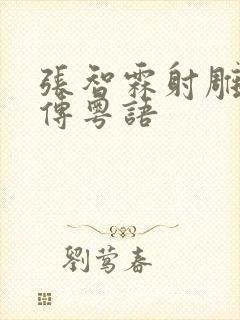 張智霖射雕
傳粵語
劉莺春